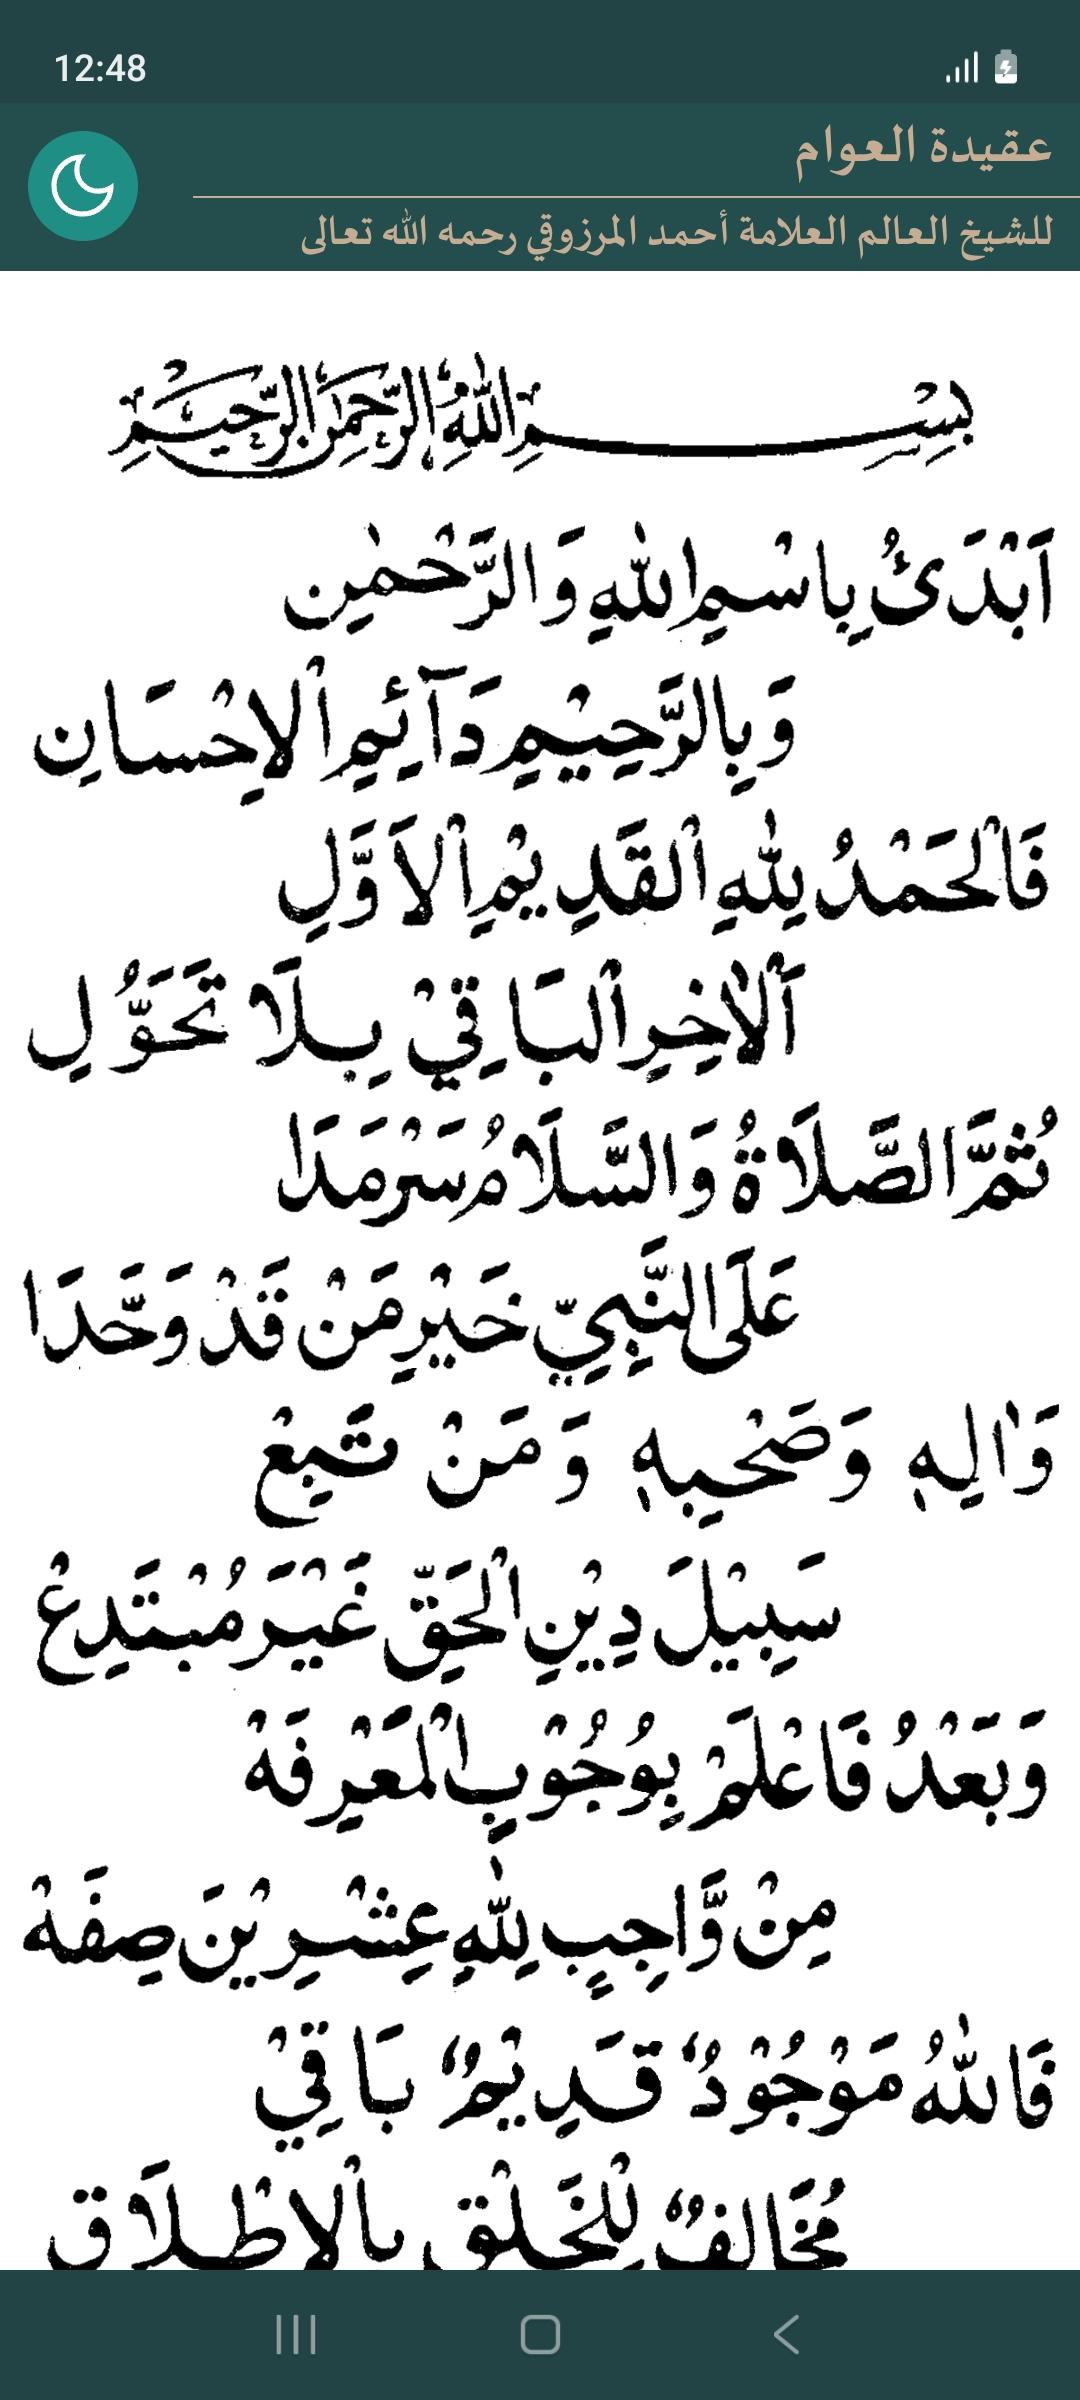 12:48
عقيدة العوام
للشيخ العالم العلامة أحمد المرزوقي رحمه الله تعالى
بِسْمِ اللهِ الرَّحْمٰنِ الرَّحِيْمِ
اَبْدَئُ بِاسْمِ اللّٰهِ وَالرَّحْمٰنِ
وَبِالرَّحِيْمِ دَآئِمِ اْلاِحْسَانِ
فَالْحَمْدُ لِلّٰهِ اْلقَدِيْمِ اْلاَوَّلِ
اَلْاٰخِرِ اْلبَاقِيْ بِلَا تَحَوُّلِ
ثُمَّ الصَّلَاةُ وَالسَّلَامُ سَرْمَدَا
عَلَى النَّبِيِّ خَيْرِ مَنْ قَدْ وَحَّدَا
وَاٰلِهٖ وَصَحْبِهٖ وَمَنْ تَبِعْ
سَبِيْلَ دِيْنِ اْلحَقِّ غَيْرَ مُبْتَدِعْ
وَبَعْدُ فَاعْلَمْ بِوُجُوْبِ اْلمَعْرِفَهْ
مِنْ وَّاجِبٍ لِلّٰهِ عِشْرِيْنَ صِفَهْ
فَاللّٰهُ مَوْجُوْدٌ قَدِيْمٌ بَاقِيْ
مُخَالِفٌ لِلْخَلْقِ بِالْاِطْلَاقِ